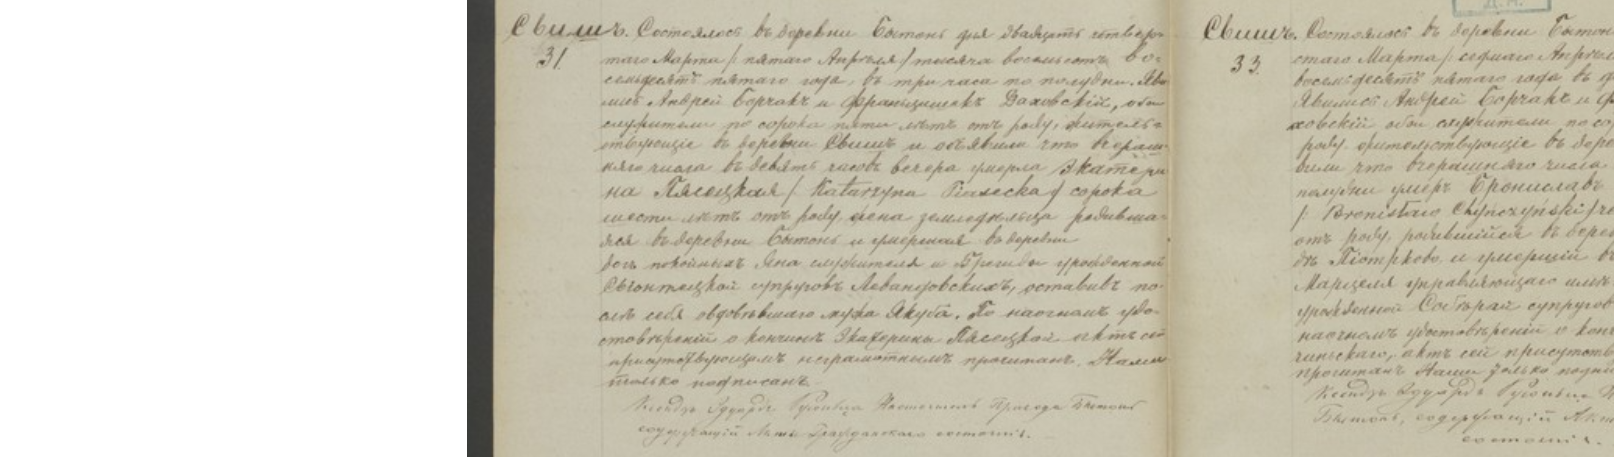 Свишъ. Состоялось въ деревни Бытонь дня двадцать четвер-
31
таго Марта /: пятаго Апрѣля :/ тысяча восемьсотъ во-
семьдесятъ пятаго года, въ три часа по полудни. Яви
лись Андрей Борчакъ и Францишекъ Ваховскій, оба
служители по сорока пяти лѣтъ отъ роду, жительс-
твующіе въ деревни Свишъ и объявили что вчераш-
няго числа въ девять часовъ вечера умерла Екатери
на Пясецкая /: Katarzyna Piasecka :/ сорока
шести лѣтъ отъ роду жена земледѣльца родивша-
яся въ деревни Бытонь и умершая въ деревни
дочь покойныхъ Яна служителя и урожденной
супруговъ Левандовскихъ, оставивъ по-
слѣ себя овдовѣвшаго мужа Якуба. По наочномъ удо-
стовѣреніи о кончинѣ Екатерины Пясецкой актъ сей
присутствующимъ неграмотнымъ прочитанъ, Нами
только подписанъ.
Ксендзъ Эдуардъ Настоятель Прихода Бытонь
содержащій Акты Гражданскаго состоянія.
Свишъ. Состоялось въ деревни Бытонь
33
стаго Марта /: седмаго Апрѣля
восемьдесятъ пятаго года въ
Явились Андрей Борчакъ и Ф
ховскій оба служители по со
роду, жительствующіе въ дере
вили что вчерашняго числа
полудни умеръ Брониславъ
/: Bronisław Chynczyński :/
отъ роду, родившійся въ дерев
Піотрково и умершій въ
Марцелія управляющаго имѣ
урожденной супругов
наочномъ удостовѣреніи о конч
актъ сей присутств
прочитанъ Нами только подпи
Ксендзъ Эдуардъ
Бытонь, содержащій Акт
состоянія.